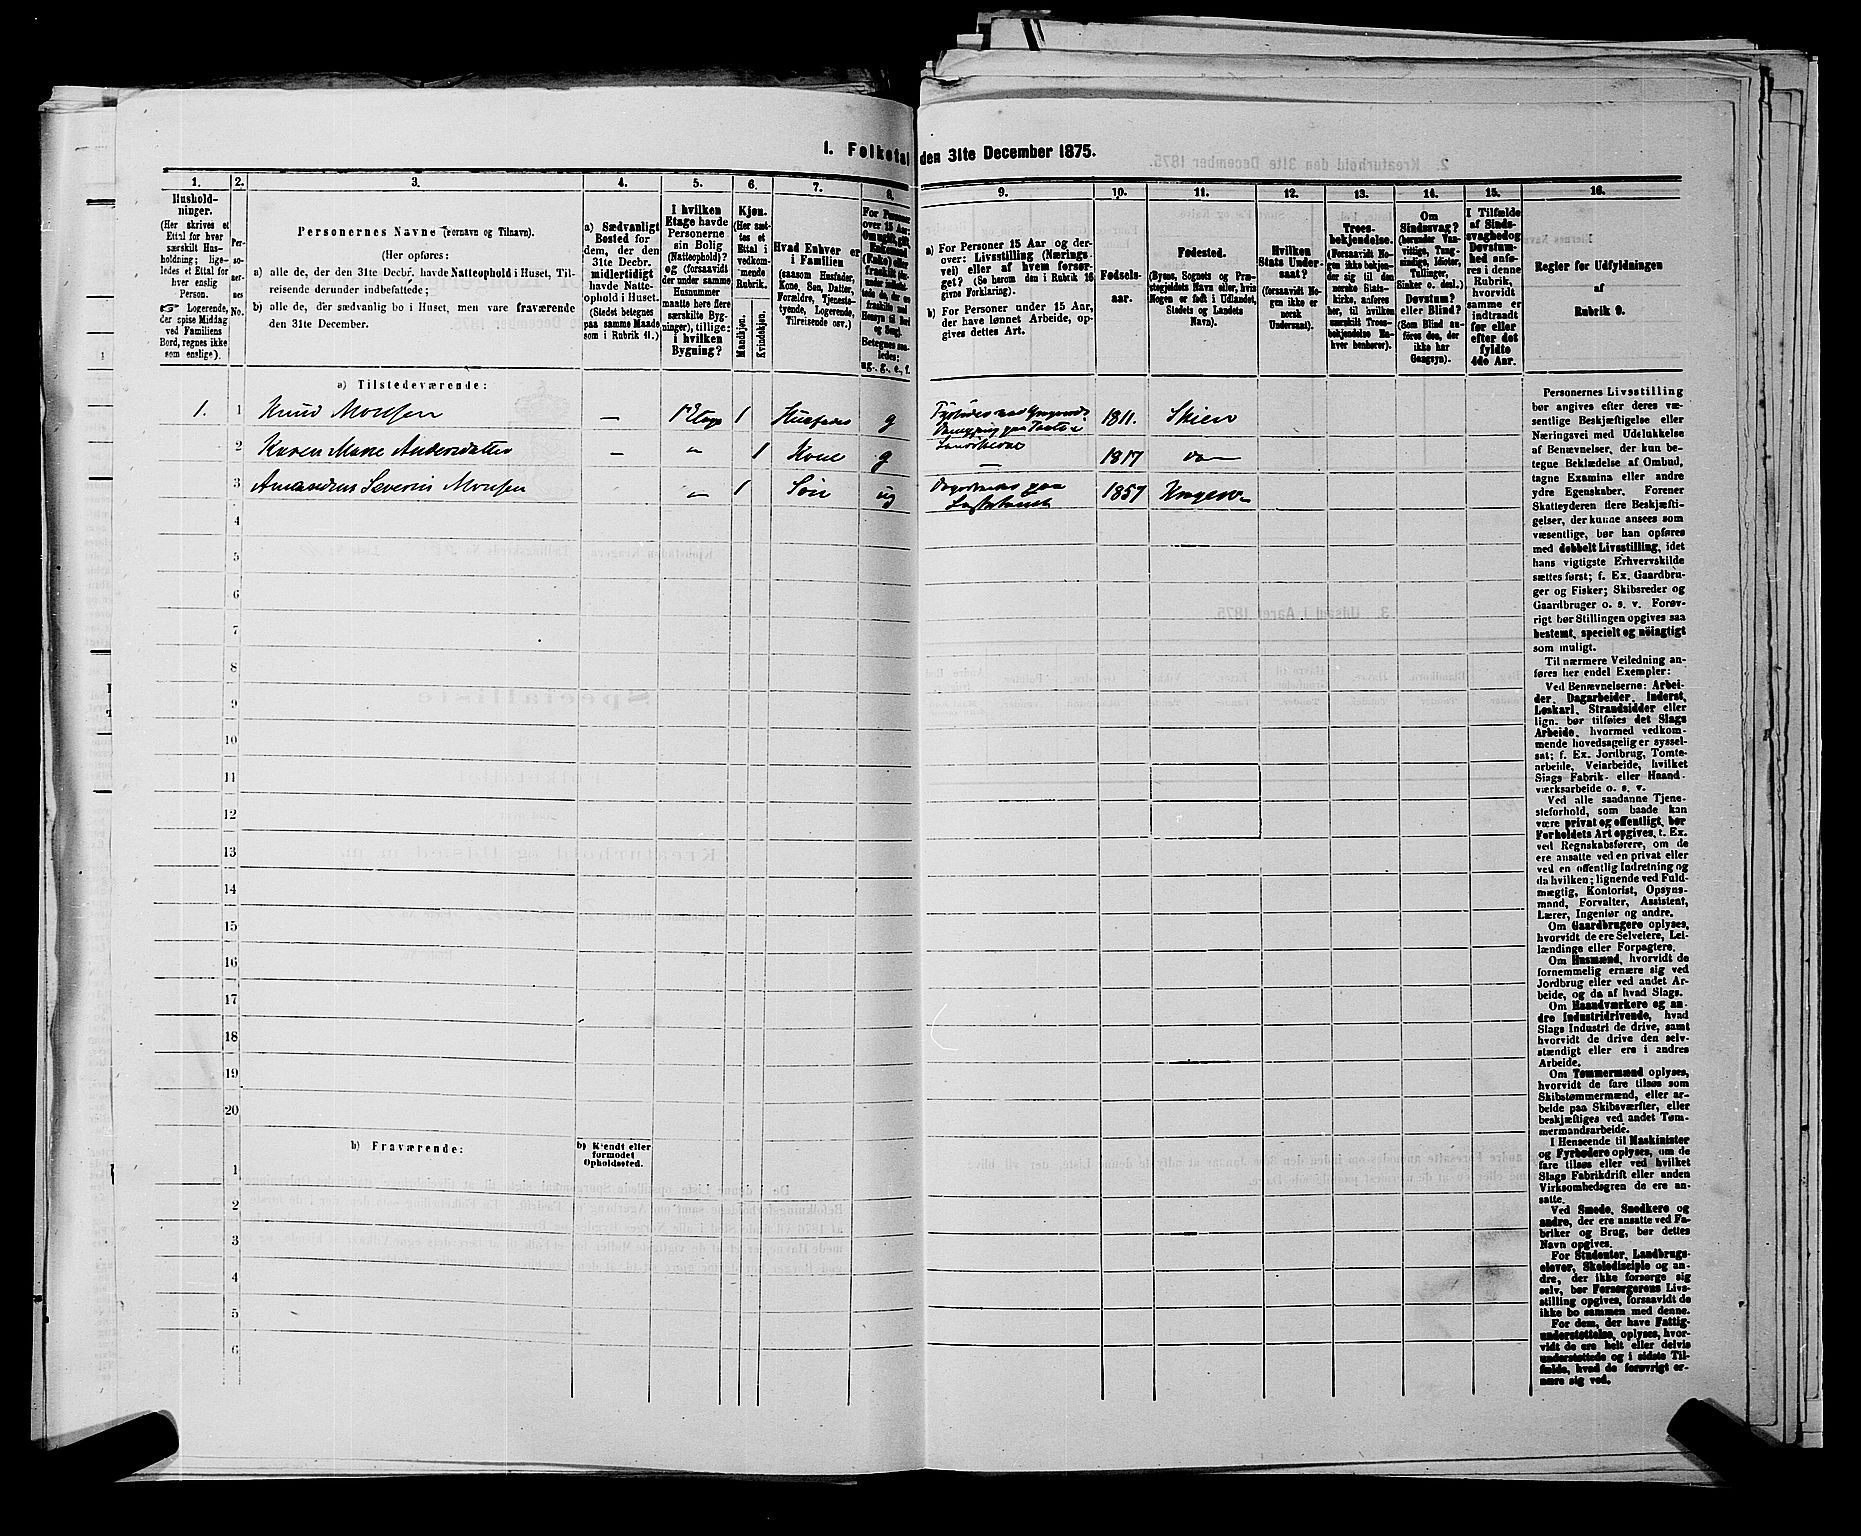 1. Folketal den 31te December 1875.
1.
Hushold-
ninger.
(Her skrives et
Ettal for hver
særskilt Hus-
holdning; lige-
ledes et Ettal for
hver enslig
Person.
☞ Logerende,
der spise Middag
ved Familiens
Bord, regnes ikke
som enslige).
2.
Per-
so-
ner-
nes
No.
3.
Personernes Navne (Fornavn og Tilnavn).
(Her opføres:
a) alle de, der den 31te Decbr. havde Natteophold i Huset, Til-
reisende derunder indbefattede;
b) alle de, der sædvanlig bo i Huset, men vare fraværende
den 31te December.
4.
a) Sædvanligt
Bosted for
dem, der den
31te Decbr.
midlertidigt
havde Natte-
ophold i Huset.
(Stedet betegnes
paa samme Maade
som i Rubrik 11.)
5.
I hvilken
Etage havde
Personerne
sin Bolig
(Natteophold)?
og (forsaavidt
der under samme
Husnummer
maatte høre flere
særskilte Byg-
ninger), tillige:
i hvilken
Bygning?
6.
Kjøn.
(Her sæt-
tes et
Ettal i
vedkom-
mende
Rubrik.
Mandkjøn.
Kvindekjøn.
7.
Hvad Enhver er
i Familien
(saasom Husfader,
Kone, Søn, Datter,
Forældre, Tjeneste-
tyende, Logerende,
Tilreisende osv.)
8.
For Personer
over 15 Aar:
Betegnes saa-
ledes:
ug., g., e., f.
9.
a) For Personer 15 Aar og der-
over: Livsstilling (Nærings-
vei) eller af hvem forsør-
get? (Se herom den i Rubrik 16
givne Forklaring).
b) For Personer under 15 Aar,
der have lønnet Arbeide, op-
gives dettes Art.
10.
Fødsels-
aar.
11.
Fødested.
(Byens, Sognets og Præ-
stegjeldets Navn eller, hvis
Nogen er født i Udlandet,
Stedets og Landets
Navn).
12.
Hvilken
Stats Under-
saat?
(forsaavidt No-
gen ikke er
norsk
Undersaat).
13.
Troes-
bekjendelse.
(Forsaavidt No-
gen ikke bekjen-
der sig til den
norske Stats-
kirke, anføres
her, til hvilken
særskilt Troes-
bekjendelse En-
hver henhører).
14.
Om
Sindssvag?
(herunder Van-
vittige, Tung-
sindige, Idioter,
Tullinger,
Sinker o. desl.)
Døvstum?
eller Blind?
(Som Blind an-
føres den, der
ikke har
Gangsyn).
15.
I Tilfælde
af Sinds-
svaghed og
Døvstum-
hed anfø-
res i denne
Rubrik,
hvorvidt
samme er
indtraadt
før eller
efter det
fyldte
4de Aar.
16.
Regler for Udfyldningen
af
Rubrik 9.
a) Tilstedeværende:
1. 1 Knud Monsen — 1 Etage 1 Husfader g 1811. Skien
2 Karen Marie Andersdatter — " 1 Kone g — 1817 do
3 Severin Monsen " 1 Søn ug 1857 Kragerø
4
5
6
7
8
9
10
11
12
13
14
15
16
17
18
19
20
b) Fraværende:
b) Kjendt eller
formodet
Opholdssted.
1
2
3
4
5
6
Personernes Livsstilling
bør angives efter deres væ-
sentlige Beskjæftigelse eller
Næringsvei med Udelukkelse
af Benævnelser, der kun be-
tegne Beklædelse af Ombud,
tagne Examina eller andre
ydre Egenskaber. Forener
Skatteyderen flere Beskjæfti-
gelser, der kunne ansees som
væsentlige, bør han opføres
med dobbelt Livsstilling, idet
hans vigtigste Erhvervskilde
sættes først; f. Ex. Gaardbru-
ger og Fisker; Skibsreder og
Gaardbruger o. s. v. Forøv-
rigt bør Stillingen opgives saa
bestemt, specielt og nöiagtigt
som muligt.
Til nærmere Veiledning an-
føres her endel Exempler:
Ved Benævnelserne: Arbei-
der, Dagarbeider, Inderst,
Løskarl, Strandsidder eller
lign. bør tilføies det Slags
Arbeide, hvormed vedkom-
mende hovedsagelig er syssel-
sat; f. Ex. Jordbrug, Tomte-
arbeide, Veiarbeide, hvilket
Slags Fabrik- eller Haand-
værksarbeide o. s. v.
Ved alle saadanne Tjene-
steforhold, som baade kan
være privat og offentligt, bør
Forholdets Art opgives, t. Ex.
ved Regnskabsførere, om de
ere ansatte ved en privat eller
ved en offentlig Indretning og
da hvilken; lignende ved Fuld-
mægtig, Kontorist, Opsyns-
mand, Forvalter, Assistent,
Lærer, Ingeniør og andre.
Om Gaardbrugere oplyses,
hvorvidt de ere Selveiere, Lei-
lændinge eller Forpagtere.
Om Husmænd, hvorvidt de
fornemmelig ernære sig ved
Jordbrug eller ved andet Ar-
beide, og da af hvad Slags.
Om Haandværkere og an-
dre Industridrivende, hvad
Slags Industri de drive, samt
hvorvidt de drive den selv-
stændigt eller ere i andres
Arbeide.
Om Tømmermænd oplyses,
hvorvidt de fare tilsøs som
Skibstømmermænd, eller ar-
beide paa Skibsværfter, eller
beskjæftiges ved andet Tøm-
mermandsarbeide.
I Henseende til Maskinister
og Fyrbødere oplyses, om de
fare tilsøs eller ved hvilket
Slags Fabrikdrift eller anden
Virksomhedsgren de ere an-
satte.
Ved Smede, Snedkere og
andre, der ere ansatte ved Fa-
briker og Brug, bør dettes
Navn opgives.
For Studenter, Landbrugs-
elever, Skoledisciple og an-
dre, der ikke forsørge sig
selv, bør Forsørgerens Livs-
stilling opgives, forsaavidt de
ikke bo sammen med denne.
For dem, der have Fattig-
understøttelse, oplyses, hvor-
vidt de ere helt eller delvis
understøttede og i sidste Til-
fælde, hvad de forøvrigt er-
nære sig ved.